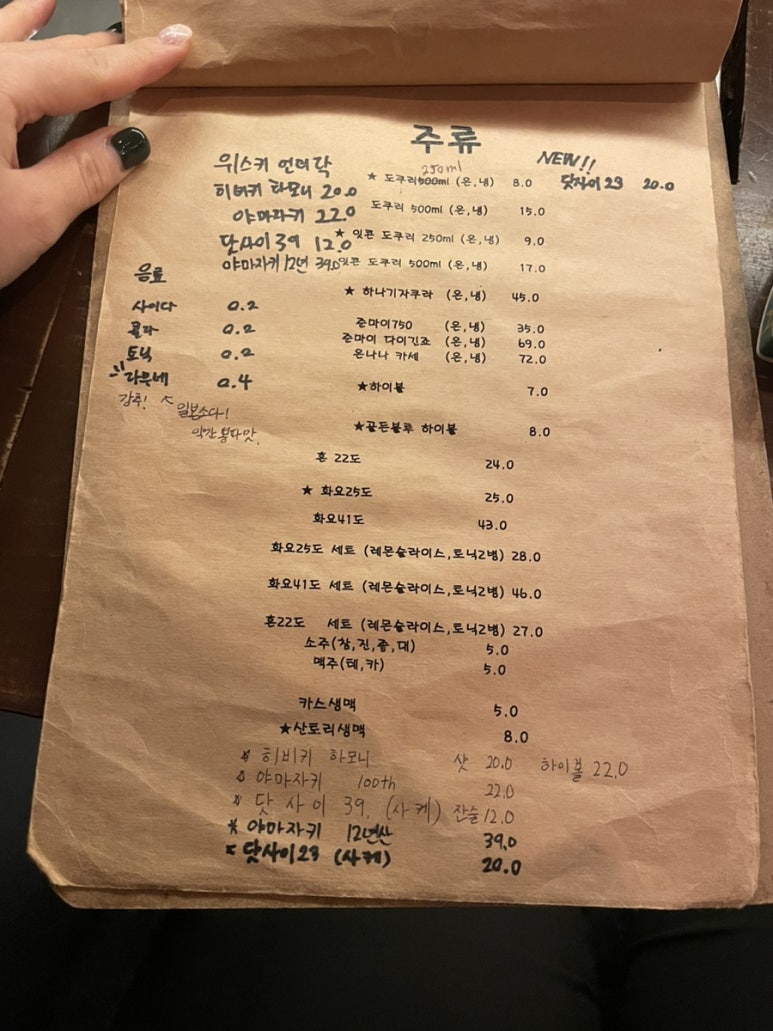 주류
NEW!!
닷사이 23 20.0
위스키 언더락
히비키 하모니 20.0
야마자키 22.0
닷사이 39 12.0
야마자키 12년 39.0
음료
사이다 0.2
콜라 0.2
토닉 0.2
라무네 0.4
강추! 일본소다!
약간 뽕따맛.
250ml
★ 도쿠리 500ml (온,냉) 8.0
도쿠리 500ml (온,냉) 15.0
★ 잇콘 도쿠리 250ml (온,냉) 9.0
잇콘 도쿠리 500ml (온,냉) 17.0
★ 하나기자쿠라 (온,냉) 45.0
준마이750 (온,냉) 35.0
준마이 다이긴죠 (온,냉) 69.0
온나나 카세 (온,냉) 72.0
★하이볼 7.0
★골든블루 하이볼 8.0
혼 22도 24.0
★ 화요25도 25.0
화요41도 43.0
화요25도 세트 (레몬슬라이스,토닉2병) 28.0
화요41도 세트 (레몬슬라이스,토닉2병) 46.0
혼22도 세트 (레몬슬라이스,토닉2병) 27.0
소주(참,진,좋,대) 5.0
맥주(테,카) 5.0
카스생맥 5.0
★산토리생맥 8.0
* 히비키 하모니 샷 20.0 하이볼 22.0
* 야마자키 100th 22.0
* 닷사이 39. (사케) 잔술 12.0
* 야마자키 12년산 39.0
* 닷사이23 (사케) 20.0